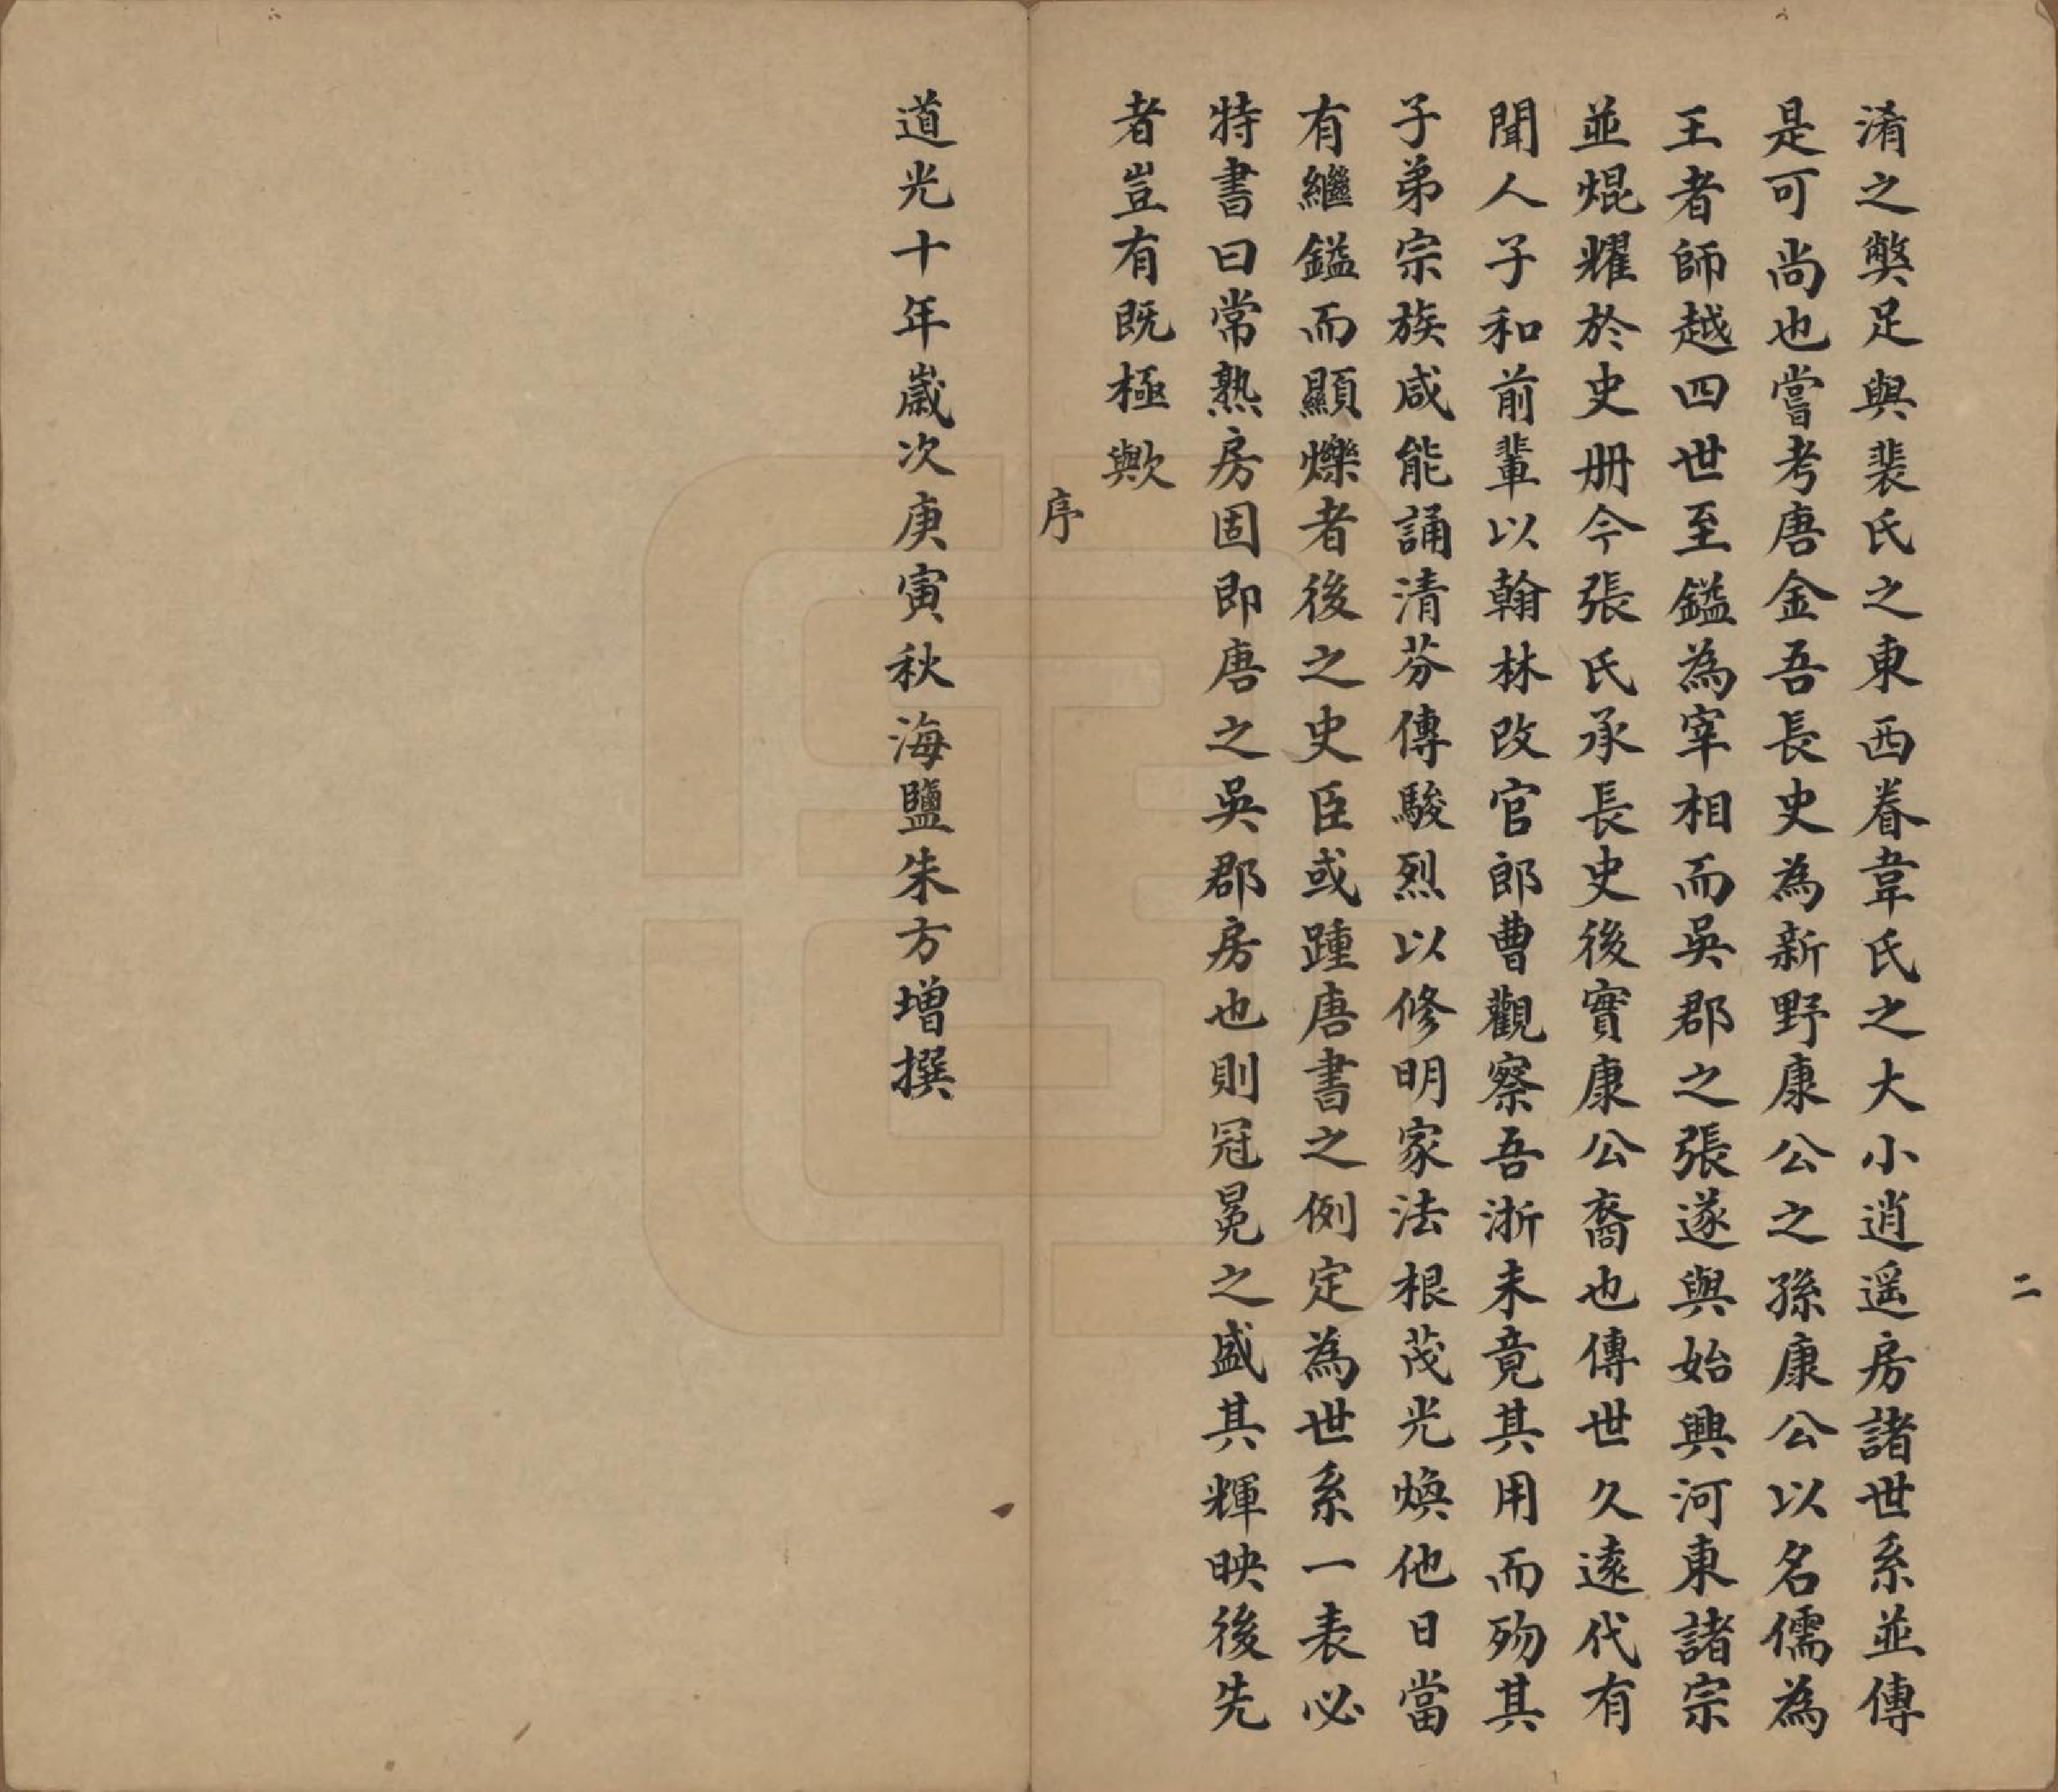 淆之獘足與裴氏之東西眷韋氏之大小逍遥房諸世系並傳
是可尚也嘗考唐金吾長史為新野康公之孫康公以名儒為
王者師越四世至鎰為宰相而吳郡之張遂與始興河東諸宗
並焜耀於史册今張氏承長史後實康公裔也傳世久遠代有
聞人子和前輩以翰林改官郎曹觀察吾浙未竟其用而殁其
子弟宗族咸能誦清芬傳駿烈以修明家法根茂光煥他日當
有繼鎰而顯爍者後之史臣或踵唐書之例定為世系一表必
特書曰常熟房固即唐之吳郡房也則冠冕之盛其輝映後先
者豈有既極歟
序
二
道光十年歲次庚寅秋海鹽朱方增撰